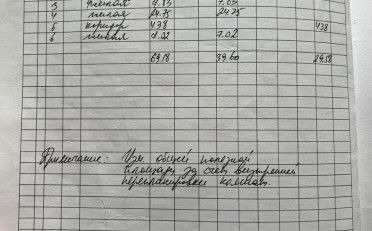 3 жилая 7.83 7.83
4 жилая 24.75 24.75
5 коридор 4.38 4.38
6 жилая 7.02 7.02
69.18 39.60 29.58
Примечание: Изм. общей полезной
площади за счет внутренней
перепланировки комнат.